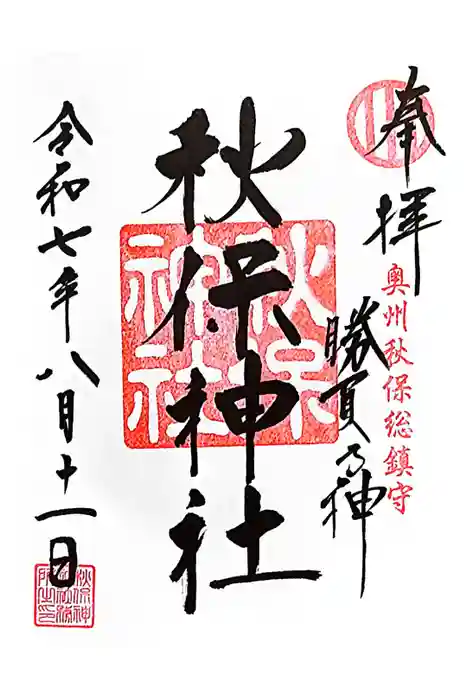 奉拝
奥州秋保総鎮守
勝負の神
秋保神社
秋保
神社
令和七年八月十一日